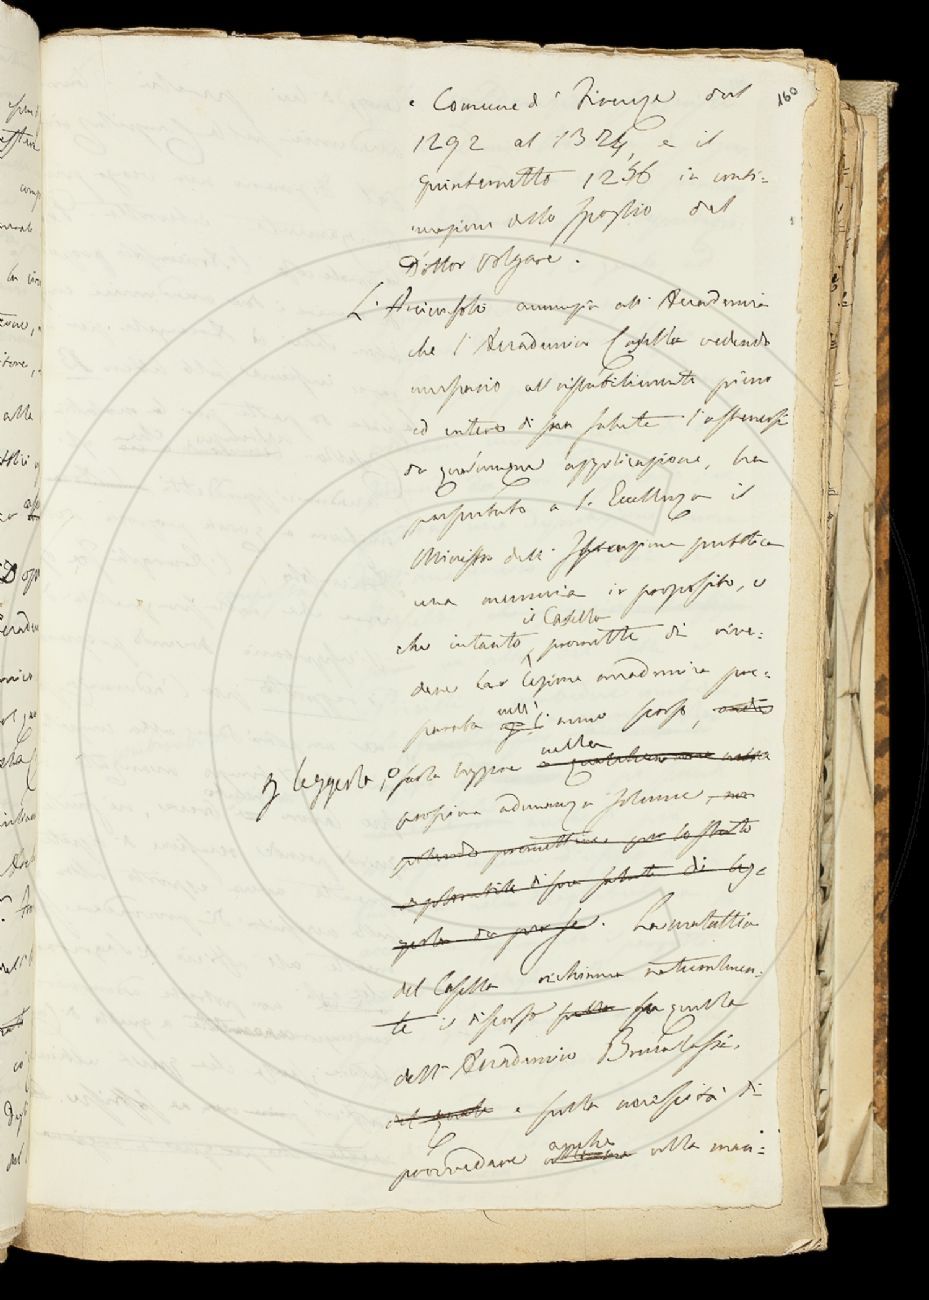 160
e Comune di Firenze dal
1292 al 1324, e il
quinternetto 1256 in conti=
nuazione dello spoglio del
Dottor Volgare.
L'Arciconsolo annunzia all'Accademia
che l'Accademico Casella vedendo
necessario al ristabilimento primo
ed intero di sua salute l'astenersi
da qualunque applicazione, ha
presentato a S. Eccellenza il
Ministro dell'Istruzione pubblica
una memoria in proposito, e
il Casella
che intanto promette di rive=
dere la Lezione accademica pre=
nell'
parata l'anno scorso,
nella
e leggerla, o farla leggere
prossima adunanza solenne, no
potendo promettere, per lo stato
di sua salute di leg=
gerla da per se. La malattia
del Casella richiama naturalmen=
te il discorso sulla su quella
dell'Accademico Brucalassi,
del quale e sulla necessità di
anche
provvedere alla man=